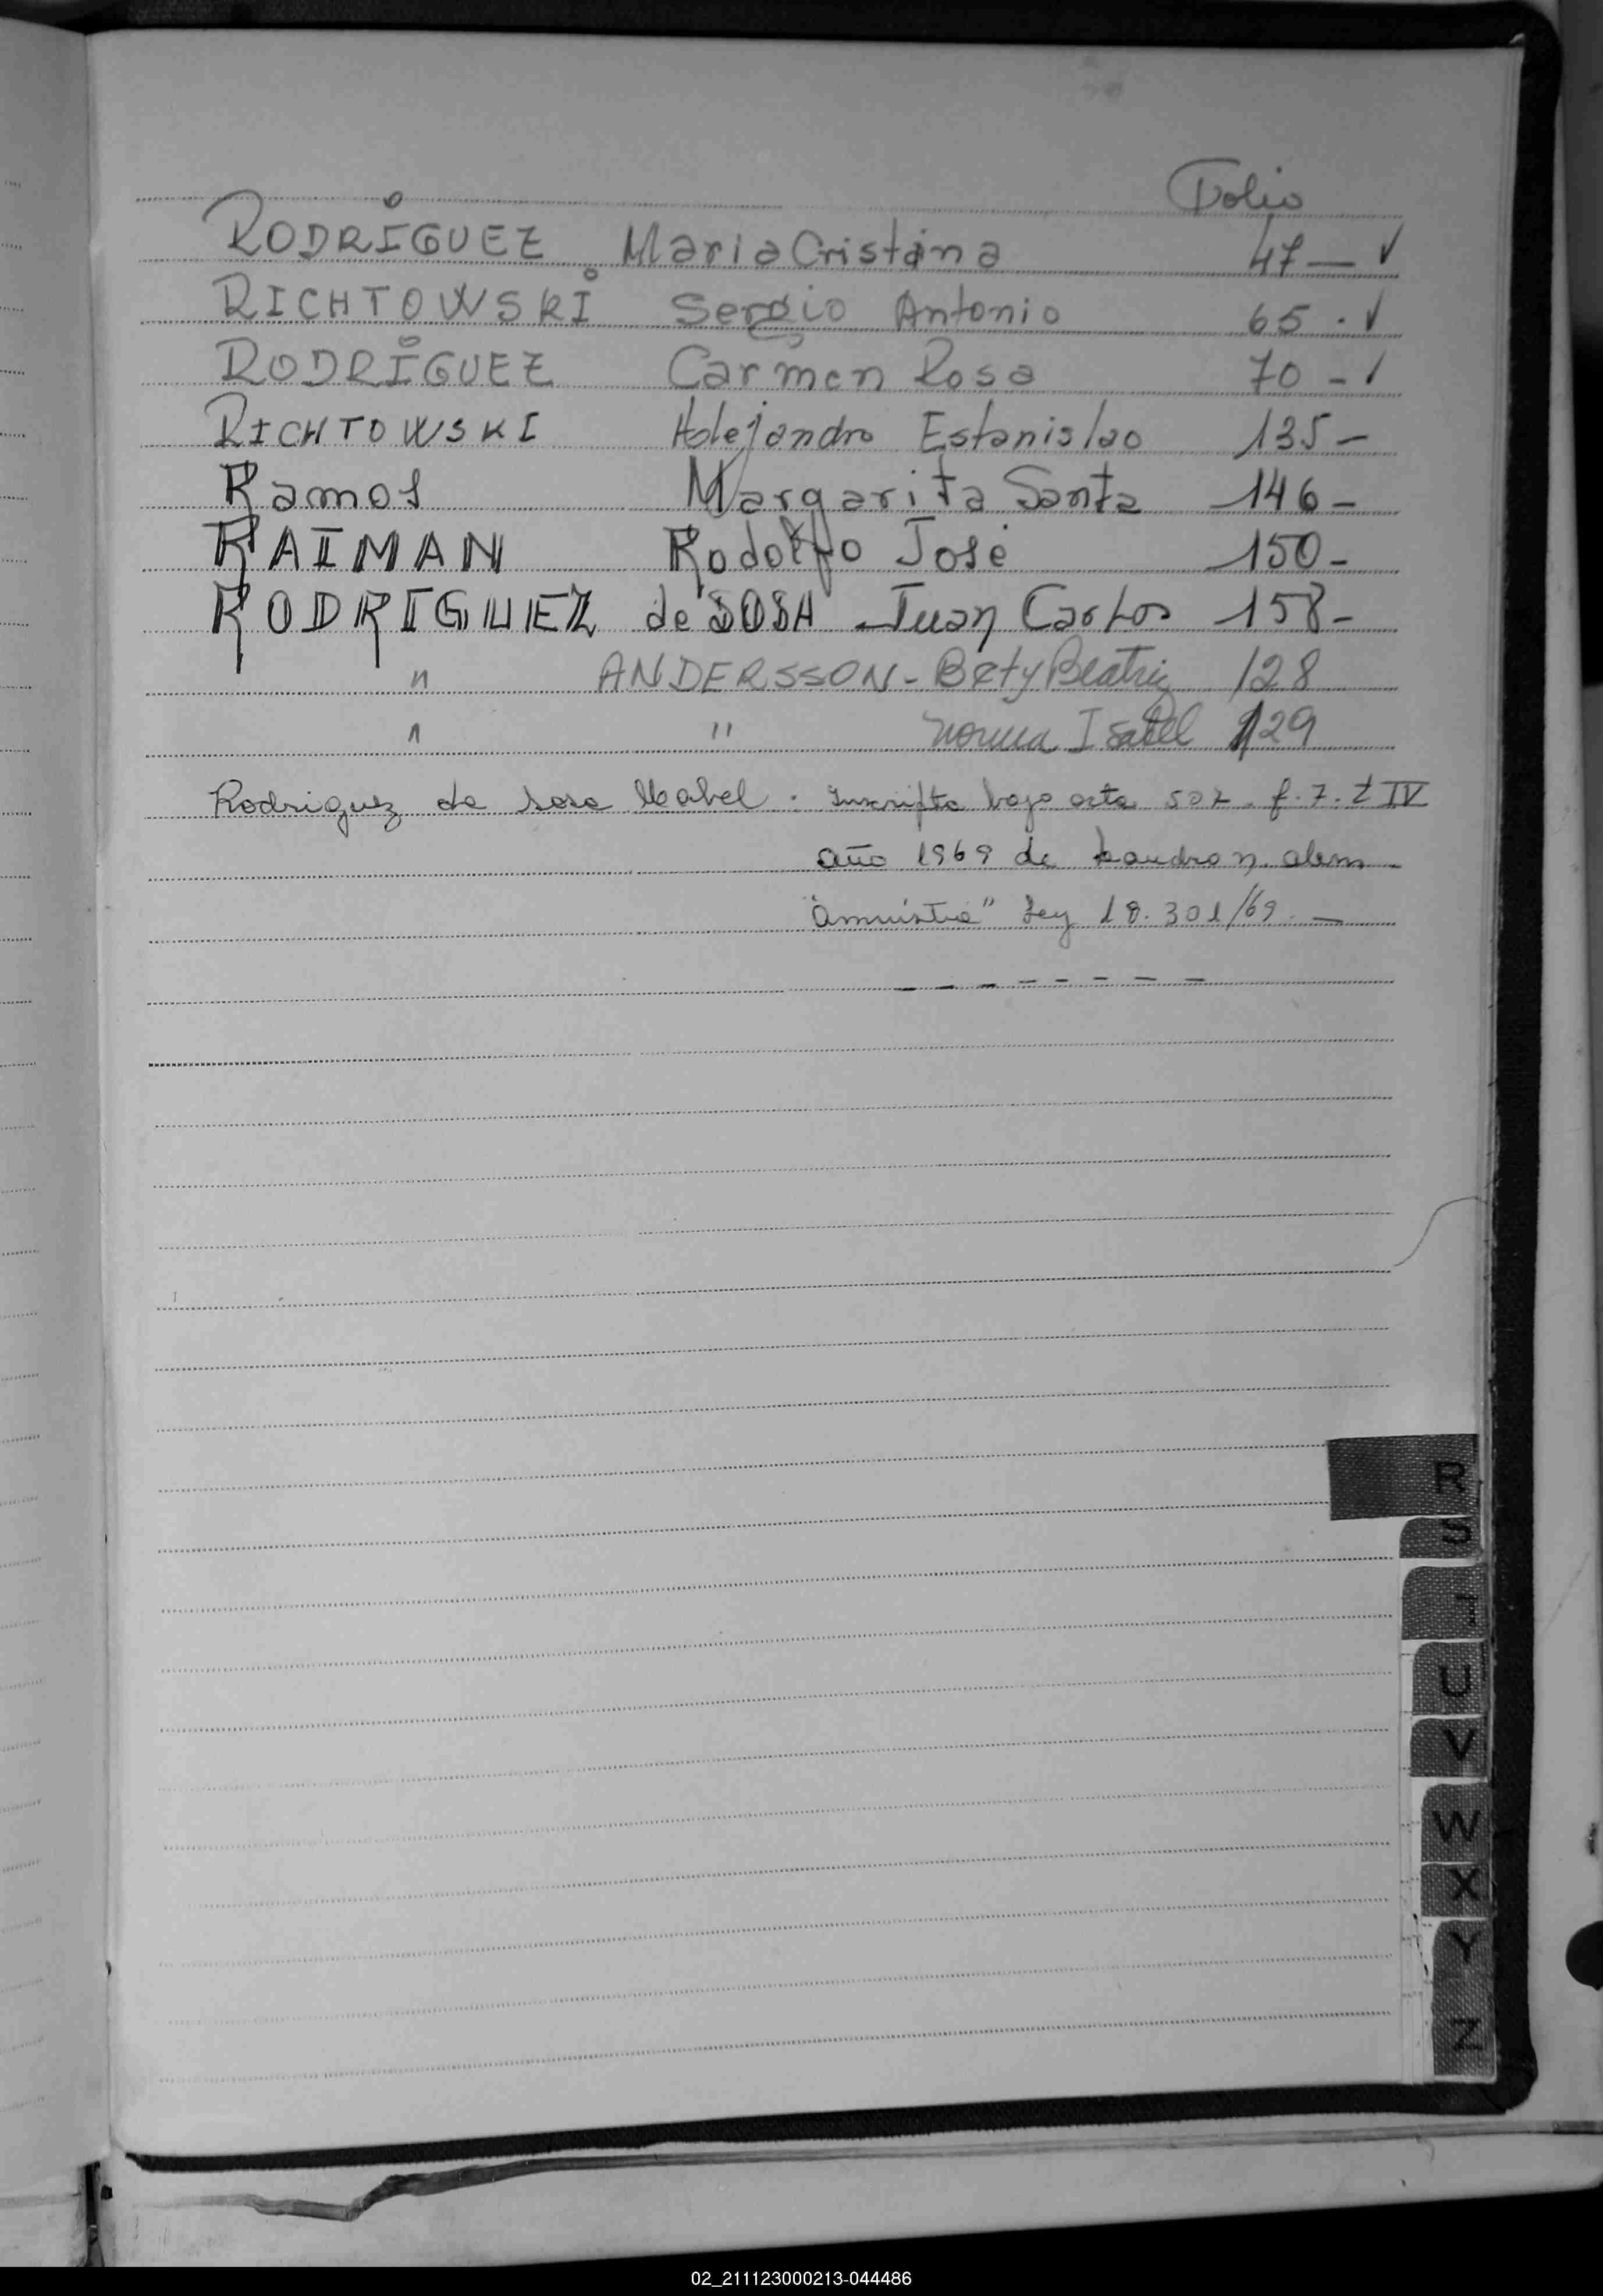 Folio
RODRÍGUEZ Maria Cristina 47 — ✓
RICHTOWSKI Sergio Antonio 65 . ✓
RODRÍGUEZ Carmen Rosa 70 - ✓
RICHTOWSKI Alejandro Estanislao 135 -
Ramos Margarita Santa 146 -
RAIMAN Rodolfo José 150 -
RODRIGUEZ de SOSA Juan Carlos 158 -
" ANDERSSON - Bety Beatriz 128
" " Norma Isabel 129
Rodriguez de Sosa Mabel . Inscripta bajo acta 502 . f. 7. t IV
año 1969 de Leandro n. alem -
"amnistia" Ley 18.301/69. —
R
S
T
U
V
W
X
Y
Z
02_211123000213-044486